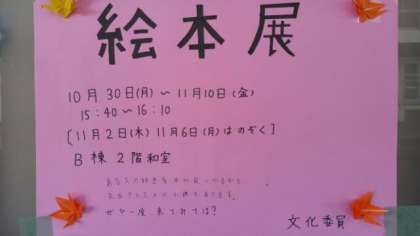 絵本展
10月30日(月)～11月10日(金)
15:40～16:10
[11月2日(木) 11月6日(月)はのぞく]
B棟2階和室
あなたの好きな本が
ぜひ一度来てみては？
文化委員